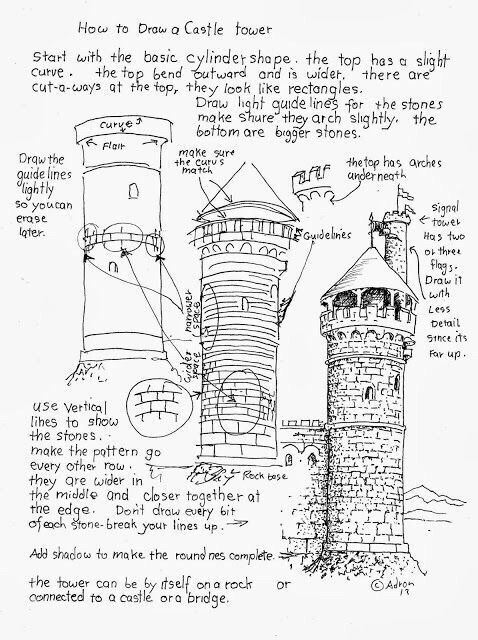 How to Draw a Castle tower
Start with the basic cylinder shape. the top has a slight
curve. the top bend outward and is wider. there are
cut-a-ways at the top, they look like rectangles.
Draw light guide lines for the stones
make shure they arch slightly. the
bottom are bigger stones.
Curve
Flair
Draw the
guide lines
lightly
so you can
erase
later.
make sure
the curvs
match
the top has arches
underneath
Guidelines
Signal
tower
Has two
or three
flags.
Draw it
with
Less
Detail
Since its
Far up.
narrower
space
wider
space
Rock base
use vertical
lines to show
the stones.
make the pattern go
every other row.
they are wider in
the middle and closer together at
the edge. Don't draw every bit
of each stone-break your lines up.
Add shadow to make the roundnes complete.
the tower can be by itself on a rock or
connected to a castle or a bridge.
© Adron
13